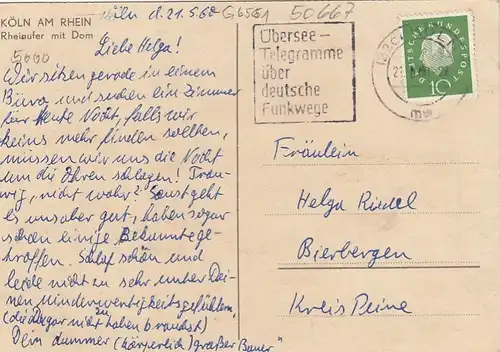 KÖLN AM RHEIN
Rheinufer mit Dom
5000
Köln d. 21.5.60
G6561
50667
Liebe Helga!
Wir sitzen gerade in einem
Büro und suchen ein Zimmer
für Heute Nacht, falls wir
keins mehr finden sollten,
müssen wir uns die Nacht
um die Ohren schlagen! Trau-
rig, nicht wahr? Sonst geht
es uns aber gut, haben sogar
schon einige Bekannte ge-
troffen. Schlaf schön und
leide nicht zu sehr unter Dei-
nen Minderwertigkeitsgefühlen,
(die Du gar nicht zu haben brauchst)
Dein dummer (körperlich) großer Bauer"
Übersee-
Telegramme
über
deutsche
Funkwege
DEUTSCHE BUNDESPOST
10
Fräulein
Helga Riedel
Bierbergen
Kreis Peine